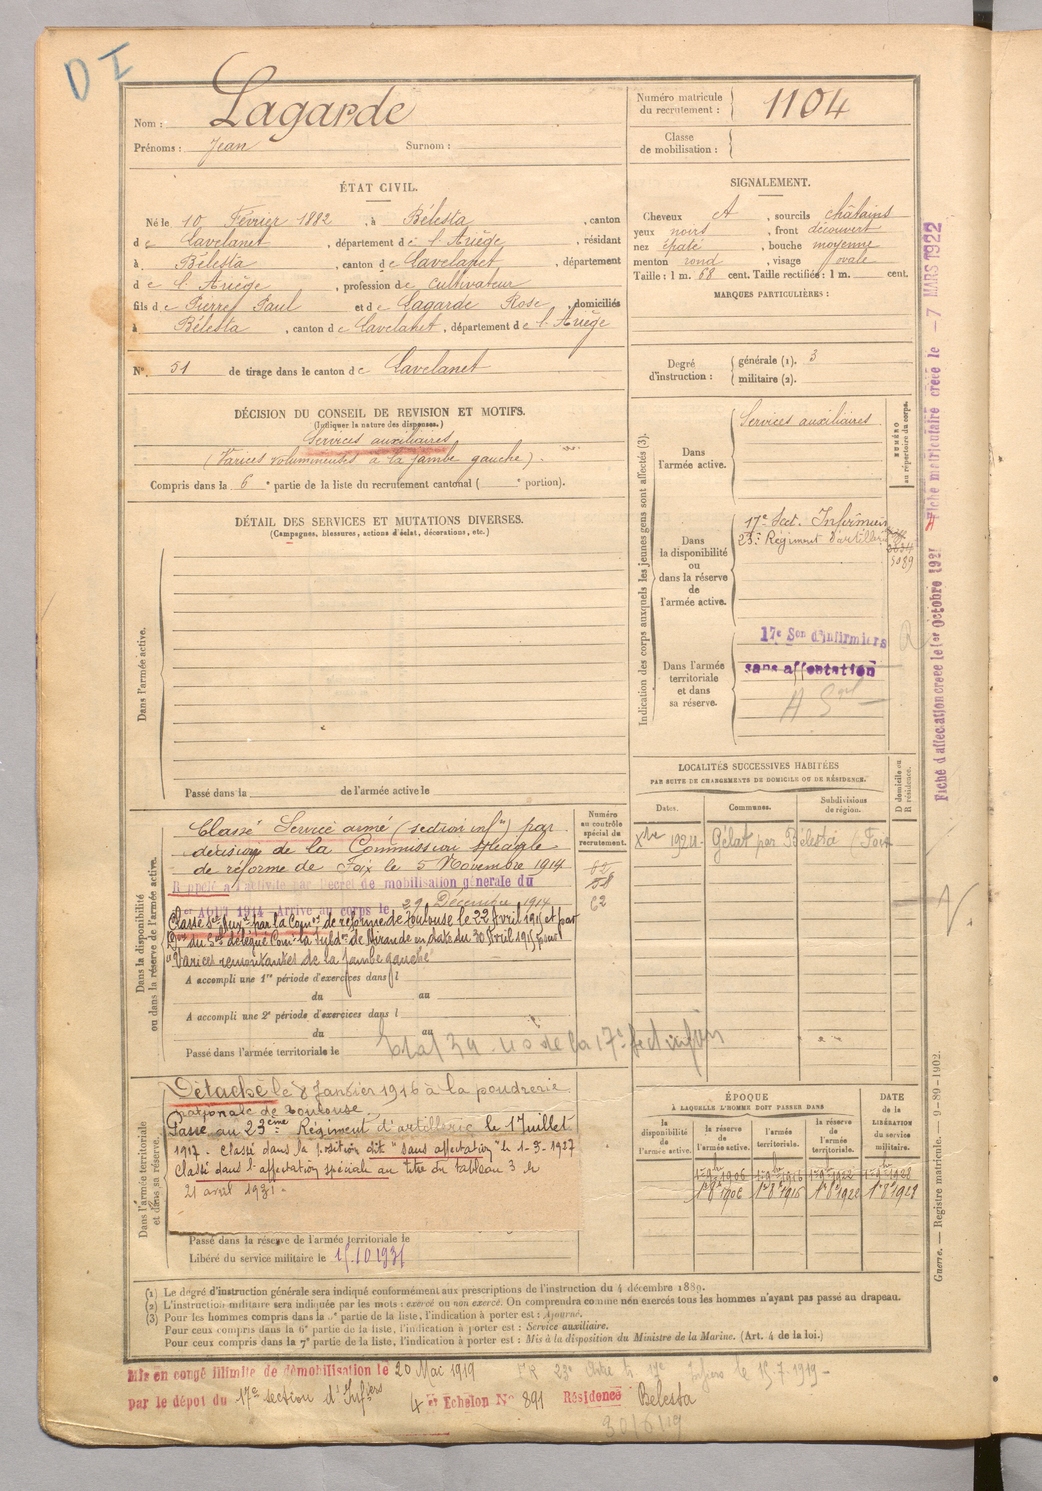 D I
Nom : Lagarde
Prénoms : Jean Surnom :
Numéro matricule du recrutement : 1104
Classe de mobilisation :
ÉTAT CIVIL.
Né le 10 Février 1882, à Bélesta, canton
de Lavelanet, département de l'Ariège, résidant
à Bélesta, canton de Lavelanet, département
de l'Ariège, profession de cultivateur
fils de Pierre Paul et de Lagarde Rose, domiciliés
à Bélesta, canton de Lavelanet, département de l'Ariège
N° 51 de tirage dans le canton de Lavelanet
SIGNALEMENT.
Cheveux et, sourcils châtains
yeux noirs, front découvert
nez épaté, bouche moyenne
menton rond, visage ovale
Taille : 1 m. 68 cent. Taille rectifiée : 1 m. cent.
MARQUES PARTICULIÈRES :
Degré d'instruction : générale (1). 3
militaire (2).
DÉCISION DU CONSEIL DE REVISION ET MOTIFS.
(Indiquer la nature des dispenses.)
Services auxiliaires
(Varices volumineuses à la jambe gauche).
Compris dans la 6e partie de la liste du recrutement cantonal ( e portion).
DÉTAIL DES SERVICES ET MUTATIONS DIVERSES.
(Campagnes, blessures, actions d'éclat, décorations, etc.)
Dans l'armée active.
Passé dans la de l'armée active le
Indication des corps auxquels les jeunes gens sont affectés (3).
NUMÉRO au répertoire du corps.
Dans l'armée active.
Services auxiliaires
Dans la disponibilité ou dans la réserve de l'armée active.
17e Sect. Infirmiers
23e Régiment d'artillerie
5089
Dans l'armée territoriale et dans sa réserve.
17e Son d'Infirmiers
sans affectation
Fiche matriculaire créée le - 7 MARS 1922
Fiche d'affectation créée le 1er Octobre 1921
LOCALITÉS SUCCESSIVES HABITÉES
PAR SUITE DE CHANGEMENTS DE DOMICILE OU DE RÉSIDENCE.
Dates. Communes. Subdivisions de région. D domicile ou R résidence.
Xbre 1924. Gélat par Bélesta (Foix
Dans la disponibilité ou dans la réserve de l'armée active.
Numéro au contrôle spécial du recrutement.
Classé Service armé (section infirs) par
décision de la Commission spéciale
de réforme de Foix le 5 Novembre 1914
Rappelé à l'activité par Décret de mobilisation générale du
1er AOUT 1914 Arrivé au corps le 29 Décembre 1914
58
62
Classé Sce Auxre par la Comon de réforme de Toulouse le 22 Avril 1915 et par
Don du Sous délégué Comt la Subdon de Mirande en date du 30 Avril 1915 pour
"Varices remontantes de la jambe gauche"
A accompli une 1re période d'exercices dans l
du au
A accompli une 2e période d'exercices dans l
du au
Passé dans l'armée territoriale le
de la 17e Sect infirs
Dans l'armée territoriale et dans sa réserve.
Détaché le 8 Janvier 1916 à la poudrerie
nationale de Toulouse.
Passé au 23ème Régiment d'artillerie le 1 Juillet
1917. Classé dans la position dit "sans affectation" le 1-5-1927
Classé dans l'affectation spéciale au titre du tableau 3 le
21 avril 1931.
Passé dans la réserve de l'armée territoriale le
Libéré du service militaire le 15.10.1931
ÉPOQUE
À LAQUELLE L'HOMME DOIT PASSER DANS
DATE de la LIBÉRATION du service militaire.
la disponibilité de l'armée active. la réserve de l'armée active. l'armée territoriale. la réserve de l'armée territoriale.
1er 9bre 1906 1er 9bre 1916 1er 9bre 1922 1er 9bre 1928
(1) Le degré d'instruction générale sera indiqué conformément aux prescriptions de l'instruction du 4 décembre 1889.
(2) L'instruction militaire sera indiquée par les mots : exercé ou non exercé. On comprendra comme non exercés tous les hommes n'ayant pas passé au drapeau.
(3) Pour les hommes compris dans la 5e partie de la liste, l'indication à porter est : Ajourné.
Pour ceux compris dans la 6e partie de la liste, l'indication à porter est : Service auxiliaire.
Pour ceux compris dans la 7e partie de la liste, l'indication à porter est : Mis à la disposition du Ministre de la Marine. (Art. 4 de la loi.)
Guerre. — Registre matricule. — 9-89-1902.
Mis en congé illimité de démobilisation le 20 Mai 1919
par le dépôt du 17e section d'Infiers 4er Echelon N° 891 Résidence Bélesta
30/6/19